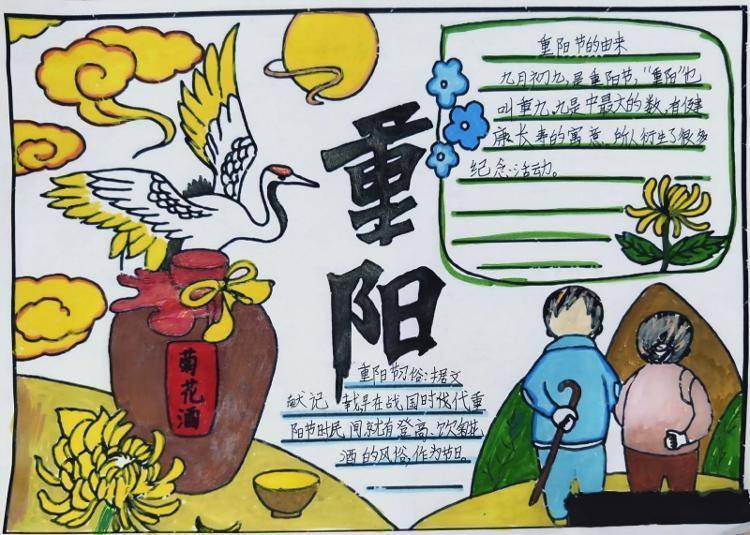 重阳
重阳节的由来
九月初九,是重阳节,“重阳”也
叫重九,九是中最大的数,有健
康长寿的寓意,所以衍生了很多
纪念活动。
重阳节习俗:据文
献记载早在战国时代代重
阳节时民间就有登高、饮菊花
酒的风俗,作为节日。
菊花酒